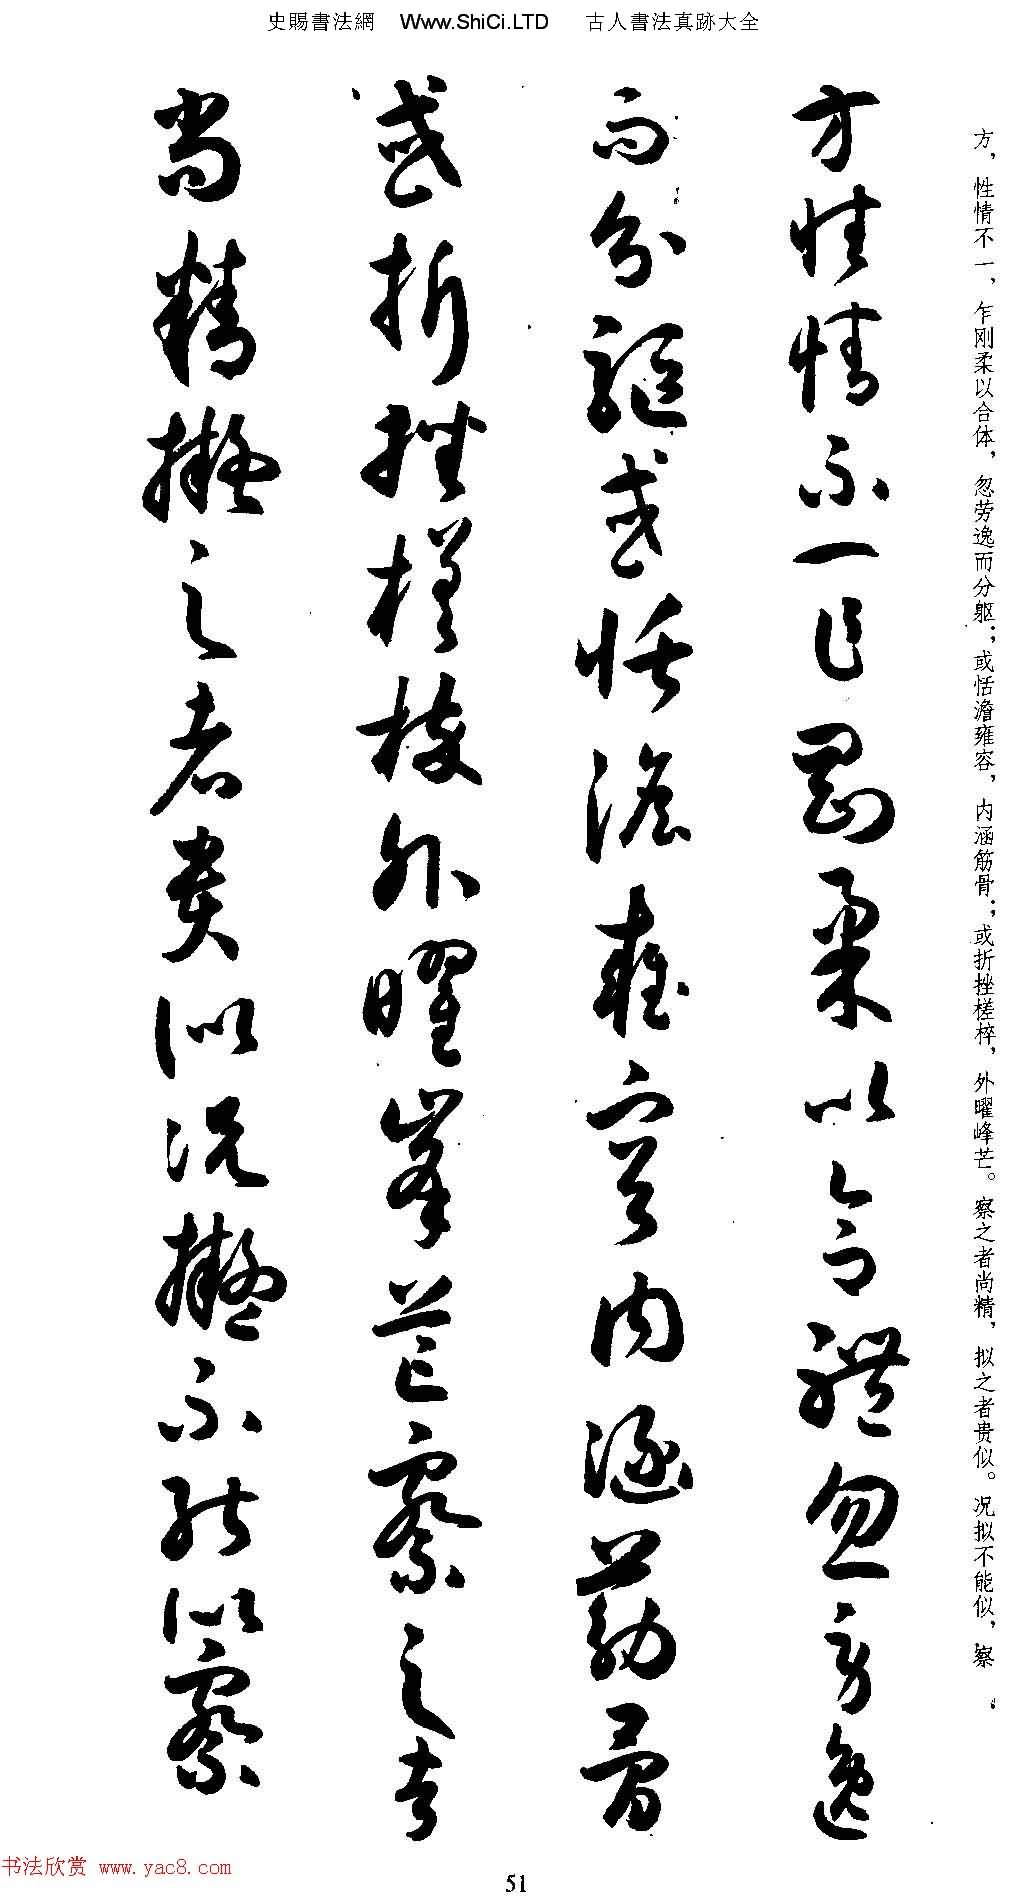 史賜書法網 Www.ShiCi.LTD 古人書法真跡大全
方，性情不一，乍刚柔以合体，忽劳逸而分躯；或恬澹雍容，内涵筋骨；或折挫槎枿，外曜峰芒。察之者尚精，拟之者贵似。况拟不能似，察
方性情不一乍剛柔以合體忽勞逸
而分軀或恬澹雍容内涵筋骨
或折挫槎枿外曜峯芒察之者
尚精擬之者貴似况擬不能似察
书法欣赏 www.yac8.com
51